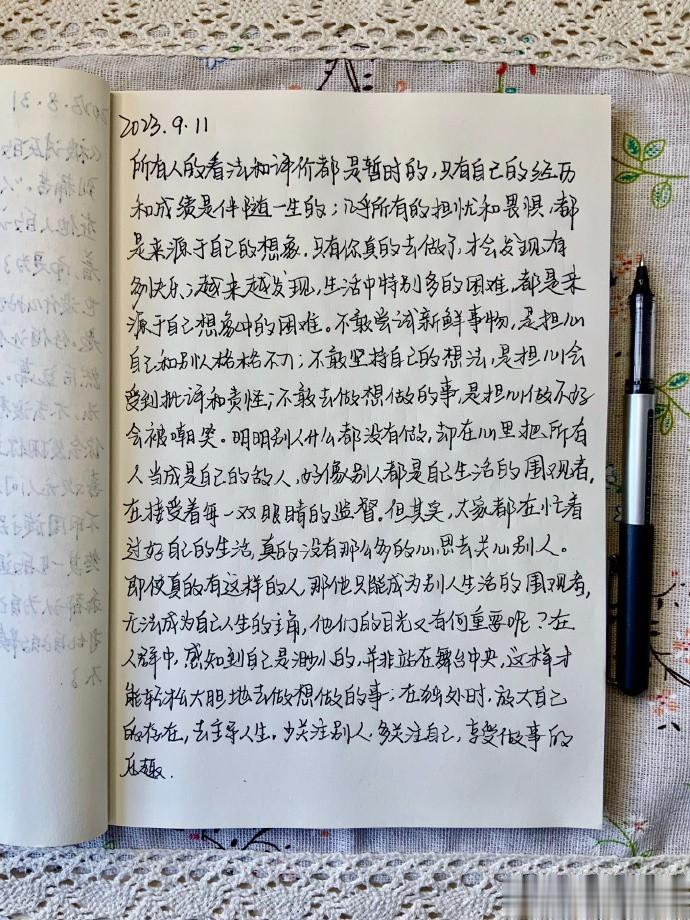 2023.9.11
所有人的看法和评价都是暂时的,只有自己的经历
和成绩是伴随一生的;几乎所有的担忧和畏惧,都
是来源于自己的想象.只有你真的去做了,才会发现有
多快乐;越来越发现,生活中特别多的困难,都是来
源于自己想象中的困难。不敢尝试新鲜事物,是担心
自己和别人格格不入;不敢坚持自己的想法,是担心会
受到批评和责怪;不敢去做想做的事,是担心做不好
会被嘲笑。明明别人什么都没有做,却在心里把所有
人当成是自己的敌人,好像别人都是自己生活的围观者,
在接受着每一双眼睛的监督。但其实,大家都在忙着
过好自己的生活,真的没有那么多的心思去关心别人。
即使真的有这样的人,那他只能成为别人生活的围观者,
无法成为自己人生的主角,他们的目光又有何重要呢?在
人群中,感知到自己是渺小的,并非站在舞台中央,这样才
能轻松大胆地去做想做的事;在独处时,放大自己
的存在,去主导人生.少关注别人,多关注自己,享受做事的
乐趣.
2023.8.31